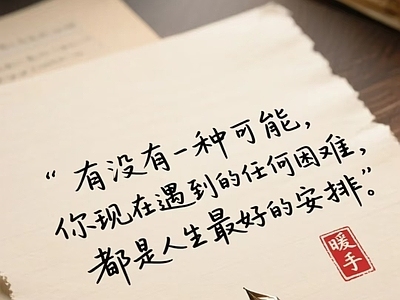 “有没有一种可能，
你现在遇到的任何困难，
都是人生最好的安排”。
暖
手